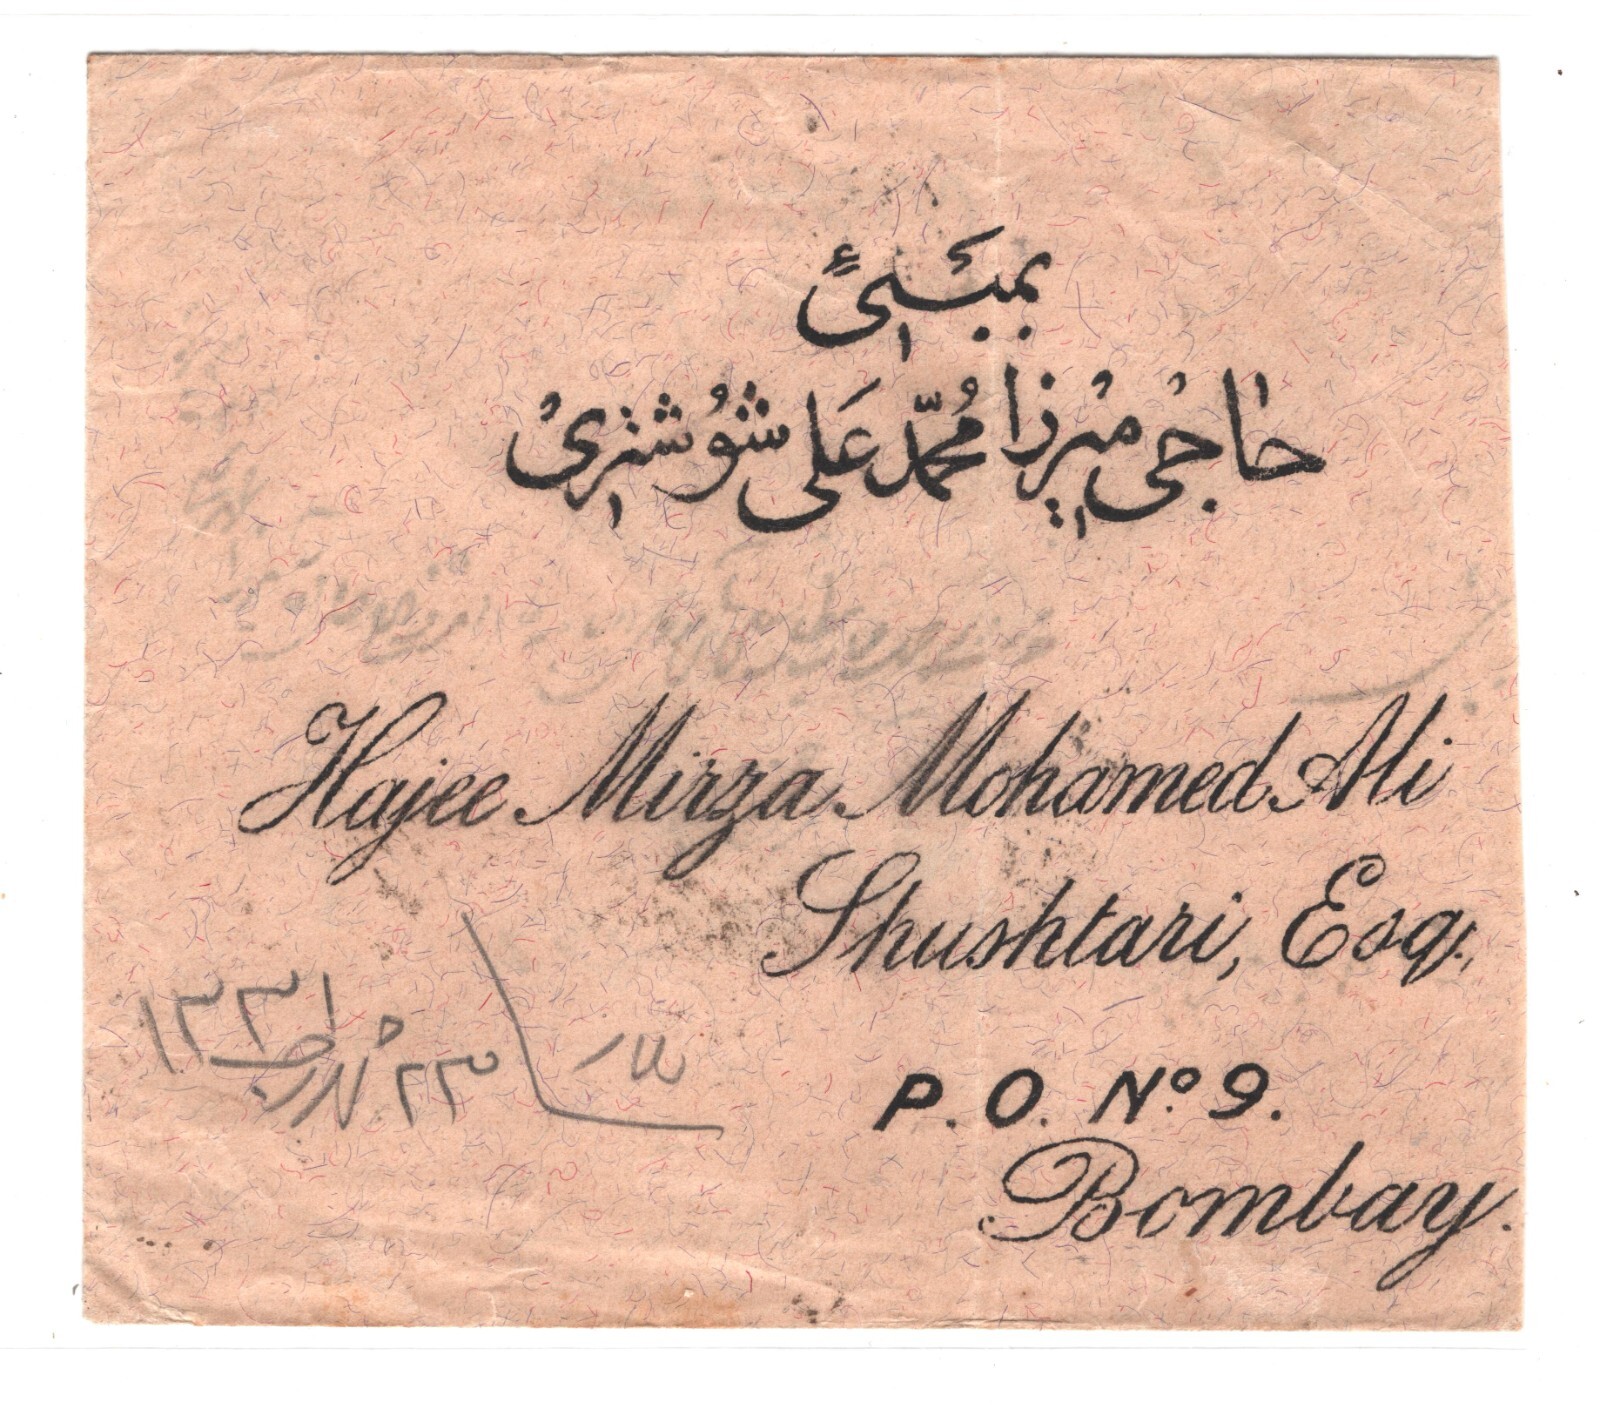 بمبئی
حاجی میرزا محمّد علی شوشتری
Hajee Mirza Mohamed Ali
Shushtari, Esq.,
P. O. Nº 9.
Bombay.
٢٣
١٣٣١